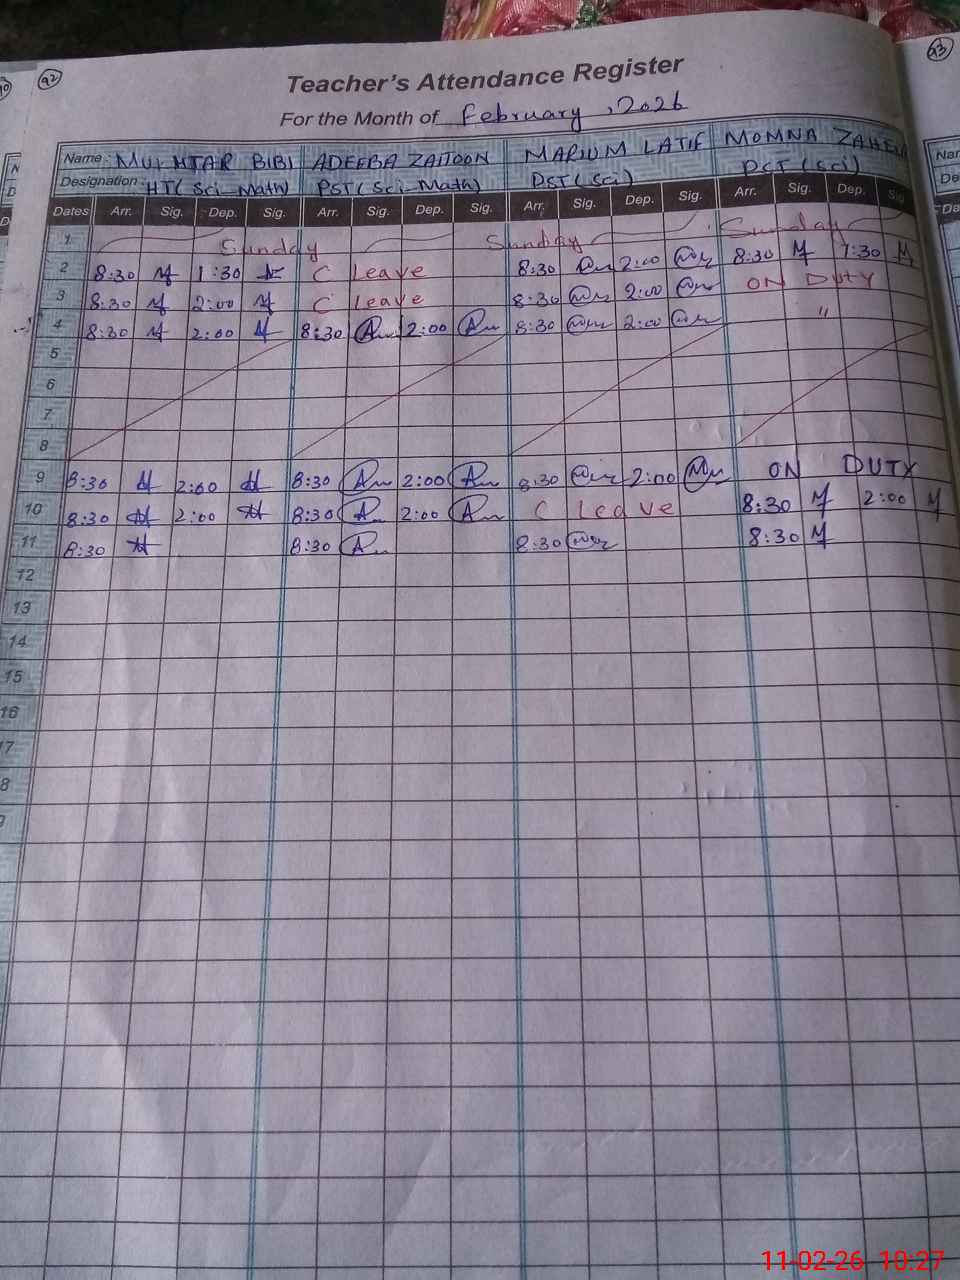 92
93
Teacher's Attendance Register
For the Month of February, 2026
Name: MUKHTAR BIBI ADEEBA ZAITOON MARIUM LATIF MOMNA
Designation: HT( Sci-Math) PST( Sci-Math) PST(Sci) PST(Sci)
Dates Arr. Sig. Dep. Sig. Arr. Sig. Dep. Sig. Arr. Sig. Dep. Sig. Arr. Sig. Dep. Sig
1 Sunday Sunday Sunday
2 8:30 1:30 C Leave 8:30 2:00 8:30 1:30
3 8:30 2:00 C Leave 8:30 2:00 ON DUTY
4 8:30 2:00 8:30 2:00 8:30 2:00 "
5
6
7
8
9 8:30 2:00 8:30 2:00 8:30 2:00 ON DUTY
10 8:30 2:00 8:30 2:00 C Leave 8:30 2:00
11 8:30 8:30 8:30 8:30
12
13
14
15
16
7
8
11-02-26 10:27